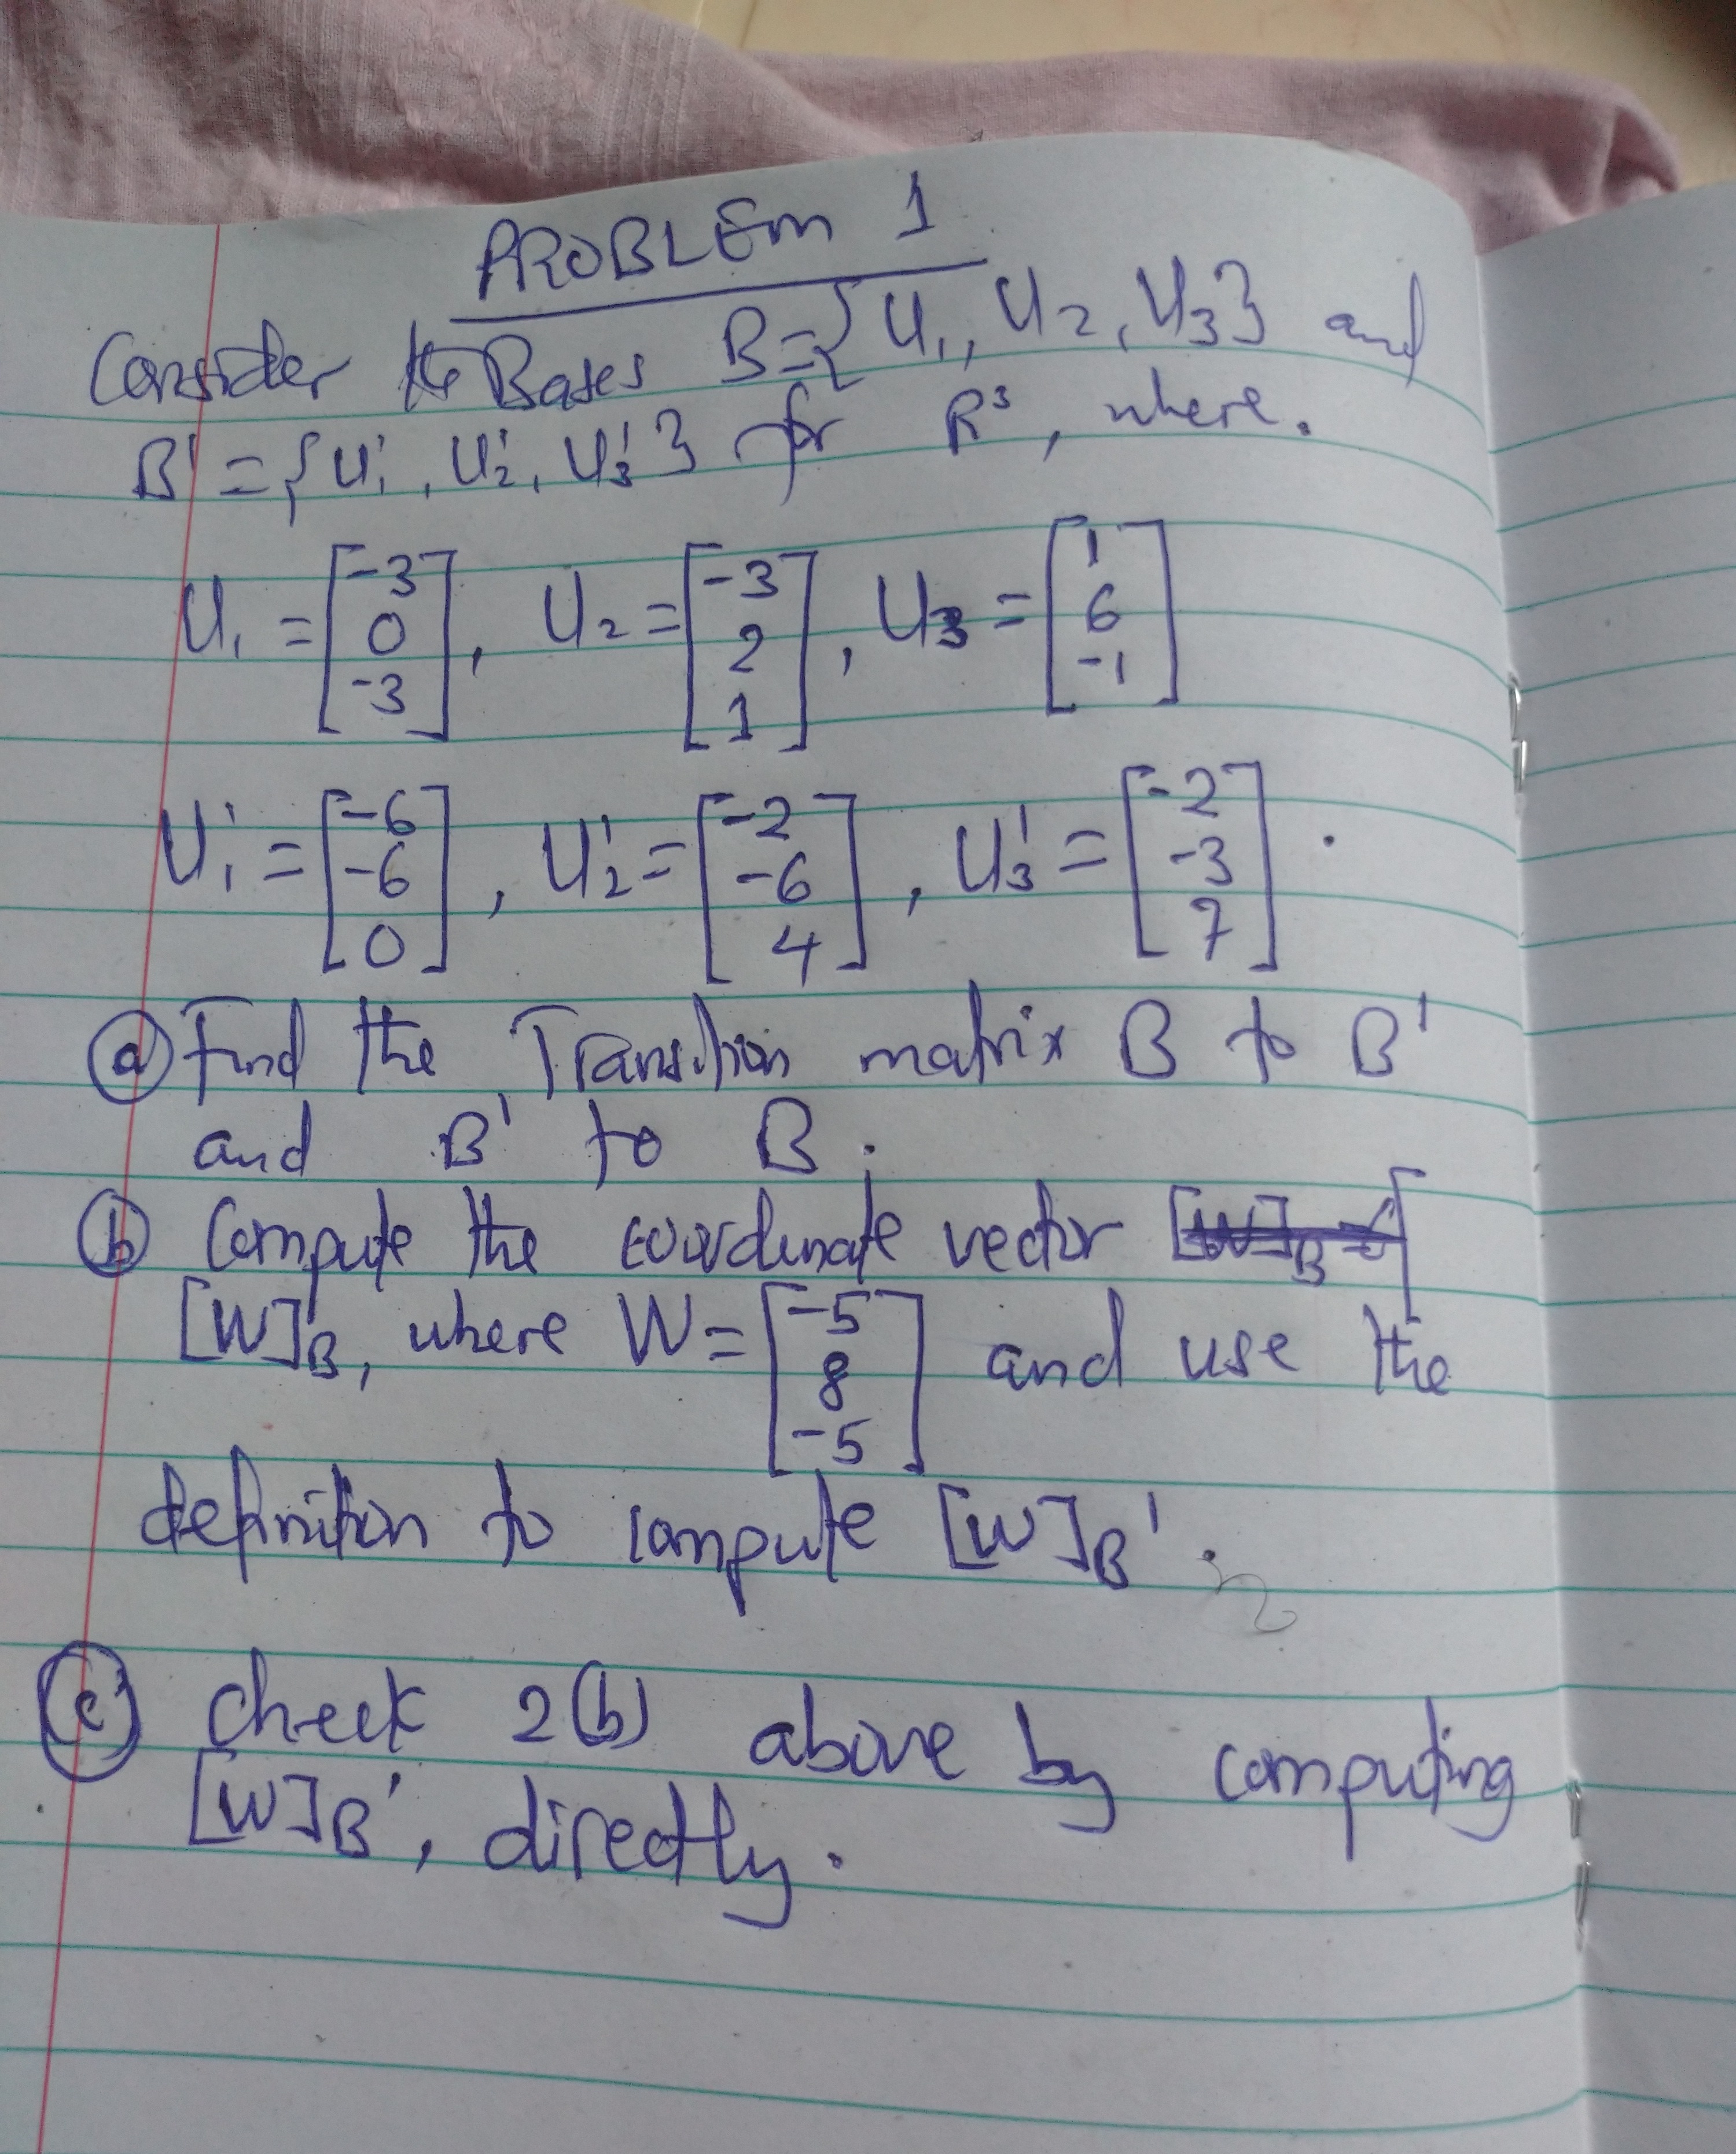 PROBLEM 1
Consider the Bases B={U₁, U₂, U₃} and
B' = {U'₁, U'₂, U'₃} for R³, where.
U₁ = [-3 0 -3], U₂ = [-3 2 1], U₃ = [1 6 -1]
U'₁ = [-6 -6 0], U'₂ = [-2 -6 4], U'₃ = [-2 -3 7].
(a) Find the Transition matrix B to B'
and B' to B.
(b) Compute the coordinate vector [W]B = [
[W]B, where W = [-5 8 -5] and use the
definition to compute [W]B'.
(c) check 2(b) above by computing
[W]B', directly.